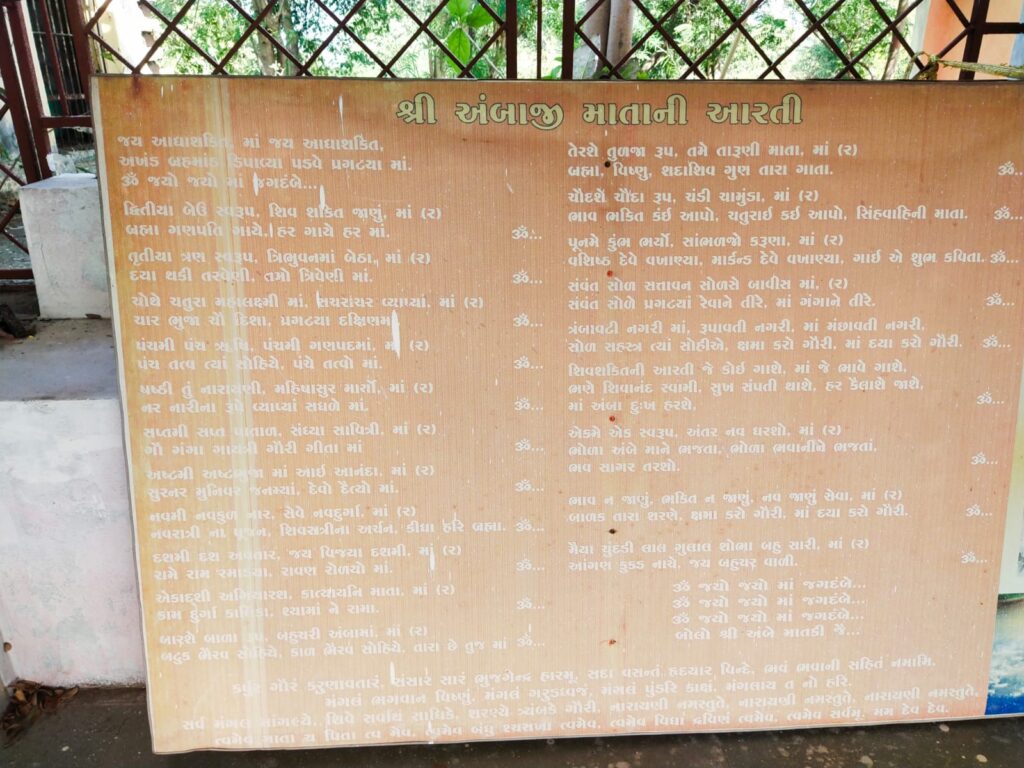 શ્રી અંબાજી માતાની આરતી
જય આદ્યાશક્તિ, માં જય આદ્યાશક્તિ,
અખંડ બ્રહ્માંડ દિપાવ્યા પડવે પ્રગટયા માં.
ૐ જયો જયો માં જગદંબે...
દ્વિતીયા બેઉ સ્વરૂપ, શિવ શક્તિ જાણું, માં (ર)
બ્રહ્મા ગણપતિ ગાયે, હર ગાયે હર માં. ૐ...
તૃતીયા ત્રણ સ્વરૂપ, ત્રિભુવનમાં બેઠા, માં (ર)
દયા થકી તરવેણી, તમો ત્રિવેણી માં. ૐ...
ચોથે ચતુરા મહાલક્ષ્મી માં, સચરાચર વ્યાપ્યાં, માં (ર)
ચાર ભુજા ચૌ દિશા, પ્રગટયા દક્ષિણમાં ૐ...
પંચમી પંચ ઋષિ, પંચમી ગણપદમાં, માં (ર)
પંચ તત્વ ત્યાં સોહિયે, પંચે તત્વો માં. ૐ...
ષષ્ઠી તું નારાયણી, મહિષાસુર માર્યો, માં (ર)
નર નારીના રૂપે વ્યાપ્યાં સઘળે માં. ૐ...
સપ્તમી સપ્ત પાતાળ, સંધ્યા સાવિત્રી, માં (ર)
ગૌ ગંગા ગાયત્રી ગૌરી ગીતા માં ૐ...
અષ્ટમી અષ્ટભુજા માં આઈ આનંદા, માં (ર)
સુરનર મુનિવર જનમ્યાં, દેવો દૈત્યો માં. ૐ...
નવમી નવકુળ નાર, સેવે નવદુર્ગા, માં (ર)
નવરાત્રી ના પૂજન, શિવરાત્રીના અર્ચન, કીધા હરિ બ્રહ્મા. ૐ...
દશમી દશ અવતાર, જય વિજયા દશમી, માં (ર)
રામે રામ રમાડયા, રાવણ રોળયો માં. ૐ...
એકાદ્શી અગિયારશ, કાત્યાયનિ માતા, માં (ર)
કામ દુર્ગા કાલિકા, શ્યામાં ને રામા. ૐ...
બારશે બાળા રૂપ, બહુચરી અંબામાં, માં (ર)
બટુક ભૈરવ સોહિયે, કાળ ભૈરવ સોહિયે, તારા છે તુજ માં ૐ...
તેરશે તુળજા રૂપ, તમે તારૂણી માતા, માં (ર)
બ્રહ્મા, વિષ્ણુ, શદાશિવ ગુણ તારા ગાતા. ૐ...
ચૌદશે ચૌદા રૂપ, ચંડી ચામુંડા, માં (ર)
ભાવ ભક્તિ કંઈ આપો, ચતુરાઈ કઈ આપો, સિંહવાહિની માતા. ૐ...
પૂનમે કુંભ ભર્યો, સાંભળજો કરૂણા, માં (ર)
વશિષ્ઠ દેવે વખાણ્યા, માર્કન્ડ દેવે વખાણ્યા, ગાઈ એ શુભ કવિતા. ૐ...
સંવંત સોળ સતાવન સોળસે બાવીસ માં, (ર)
સંવંત સોળે પ્રગટયાં રેવાને તીરે, માં ગંગાને તીરે. ૐ...
ત્રંબાવટી નગરી માં, રૂપાવતી નગરી, માં મંછાવતી નગરી,
સોળ સહસ્ત્ર ત્યાં સોહીએ, ક્ષમા કરો ગૌરી, માં દયા કરો ગૌરી. ૐ...
શિવશક્તિની આરતી જે કોઈ ગાશે, માં જે ભાવે ગાશે,
ભણે શિવાનંદ સ્વામી, સુખ સંપતી થાશે, હર કૈલાશે જાશે,
માં અંબા દુઃખ હરશે, ૐ...
એકમે એક સ્વરૂપ, અંતર નવ ધરશો, માં (ર)
ભોળા અંબે માને ભજતા, ભોળા ભવાનીને ભજતાં,
ભવ સાગર તરશો. ૐ...
ભાવ ન જાણું, ભક્તિ ન જાણું, નવ જાણું સેવા, માં (ર)
બાળક તારા શરણે, ક્ષમા કરો ગૌરી, માં દયા કરો ગૌરી. ૐ...
મૈયા ચુંદડી લાલ ગુલાલ શોભા બહુ સારી, માં (ર)
આંગણ કુકડ નાચે, જય બહુચર વાળી. ૐ...
ૐ જયો જયો માં જગદંબે...
ૐ જયો જયો માં જગદંબે...
ૐ જયો જયો માં જગદંબે...
બોલો શ્રી અંબે માતકી જૈ...
કર્પુર ગૌરં કરુણાવતારં, સંસાર સારં ભુજગેન્દ્ર હારમ્, સદા વસન્તં હૃદયાર વિન્દે, ભવં ભવાની સહિતં નમામિ.
મંગલં ભગવાન વિષ્ણું, મંગલં ગરુડધ્વજ, મંગલં પુંકરિ કાક્ષં, મંગલાય ત નો હરિ.
સર્વ મંગલ માંગલ્યે, શિવે સર્વાથ સાધિકે, શરણ્યે ત્ર્યંબકે ગૌરી, નારાયણી નમસ્તુતે, નારાયણી નમસ્તુતે, નારાયણી નમસ્તુતે,
ત્વમેવ માતા ચ પિતા ત્વ મેવ, ત્વમેવ બંધુ શ્ચસખા ત્વમેવ, ત્વમેવ વિદ્યા દ્રવિણં ત્વમેવ, ત્વમેવ સર્વમ્, મમ દેવ દેવ.